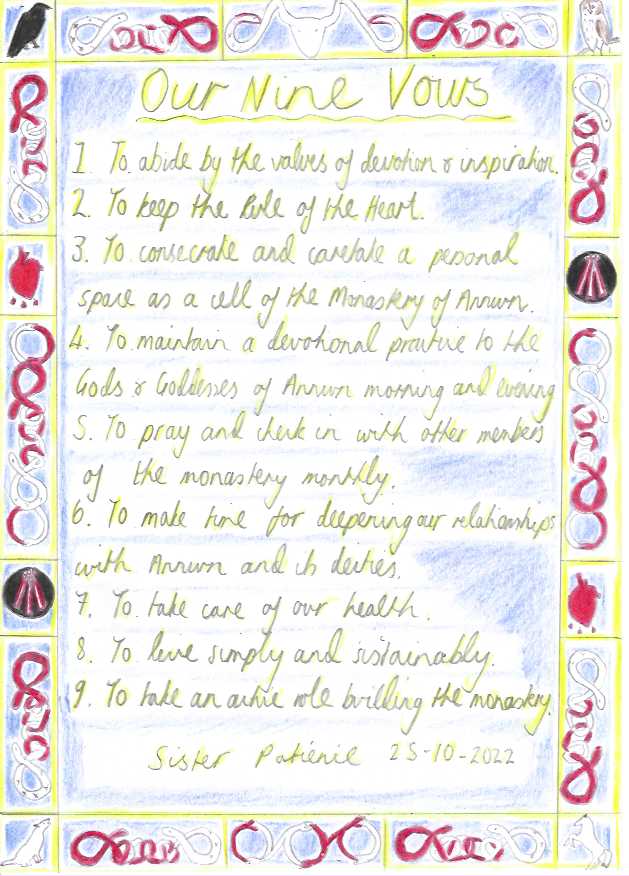 Our Nine Vows
1. To abide by the values of devotion & inspiration.
2. To keep the Rule of the Heart.
3. To consecrate and caretake a personal
space as a cell of the Monastery of Annwn.
4. To maintain a devotional practice to the
Gods & Goddesses of Annwn morning and evening
5. To pray and check in with other members
of the monastery monthly.
6. To make time for deepening our relationships
with Annwn and its deities.
7. To take care of our health.
8. To live simply and sustainably.
9. To take an active role building the monastery.
Sister Patience 25-10-2022